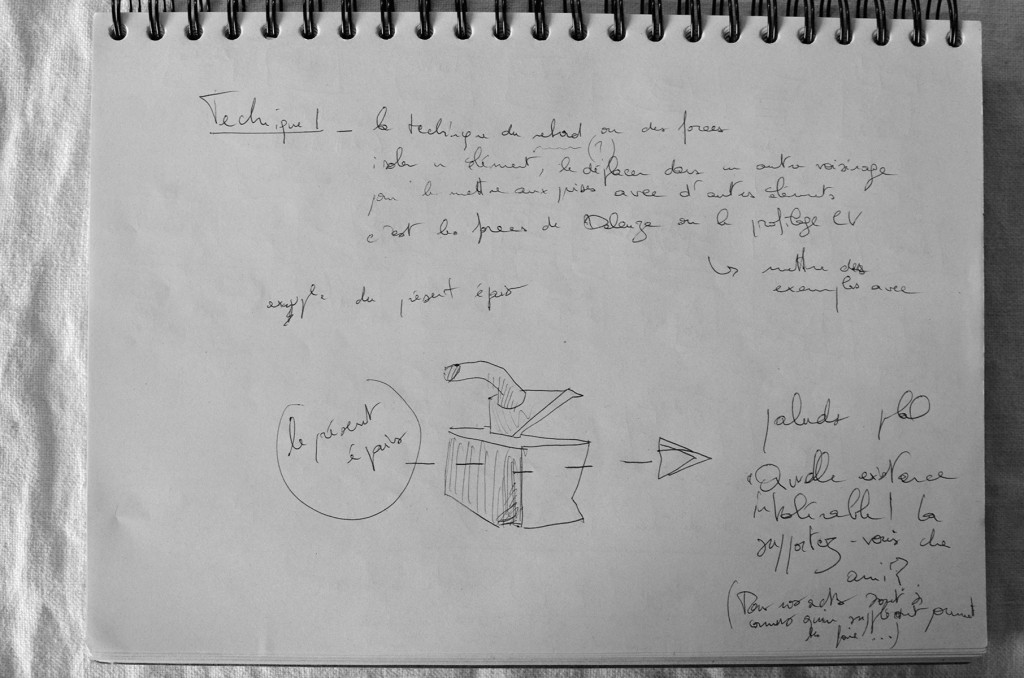 Technique 1 - la technique du rebord ou des forces
(1)
isoler un élément, le déplacer dans un autre voisinage
pour le mettre aux prises avec d'autres éléments
c'est les forces de Deleuze ou le profilage CV
↳ mettre des
exemples avec
exemple du présent épais
le présent
épais
paluds
"Quelle existence
intolérable ! la
supportez-vous cher
ami ?
(Tous nos acts sont à